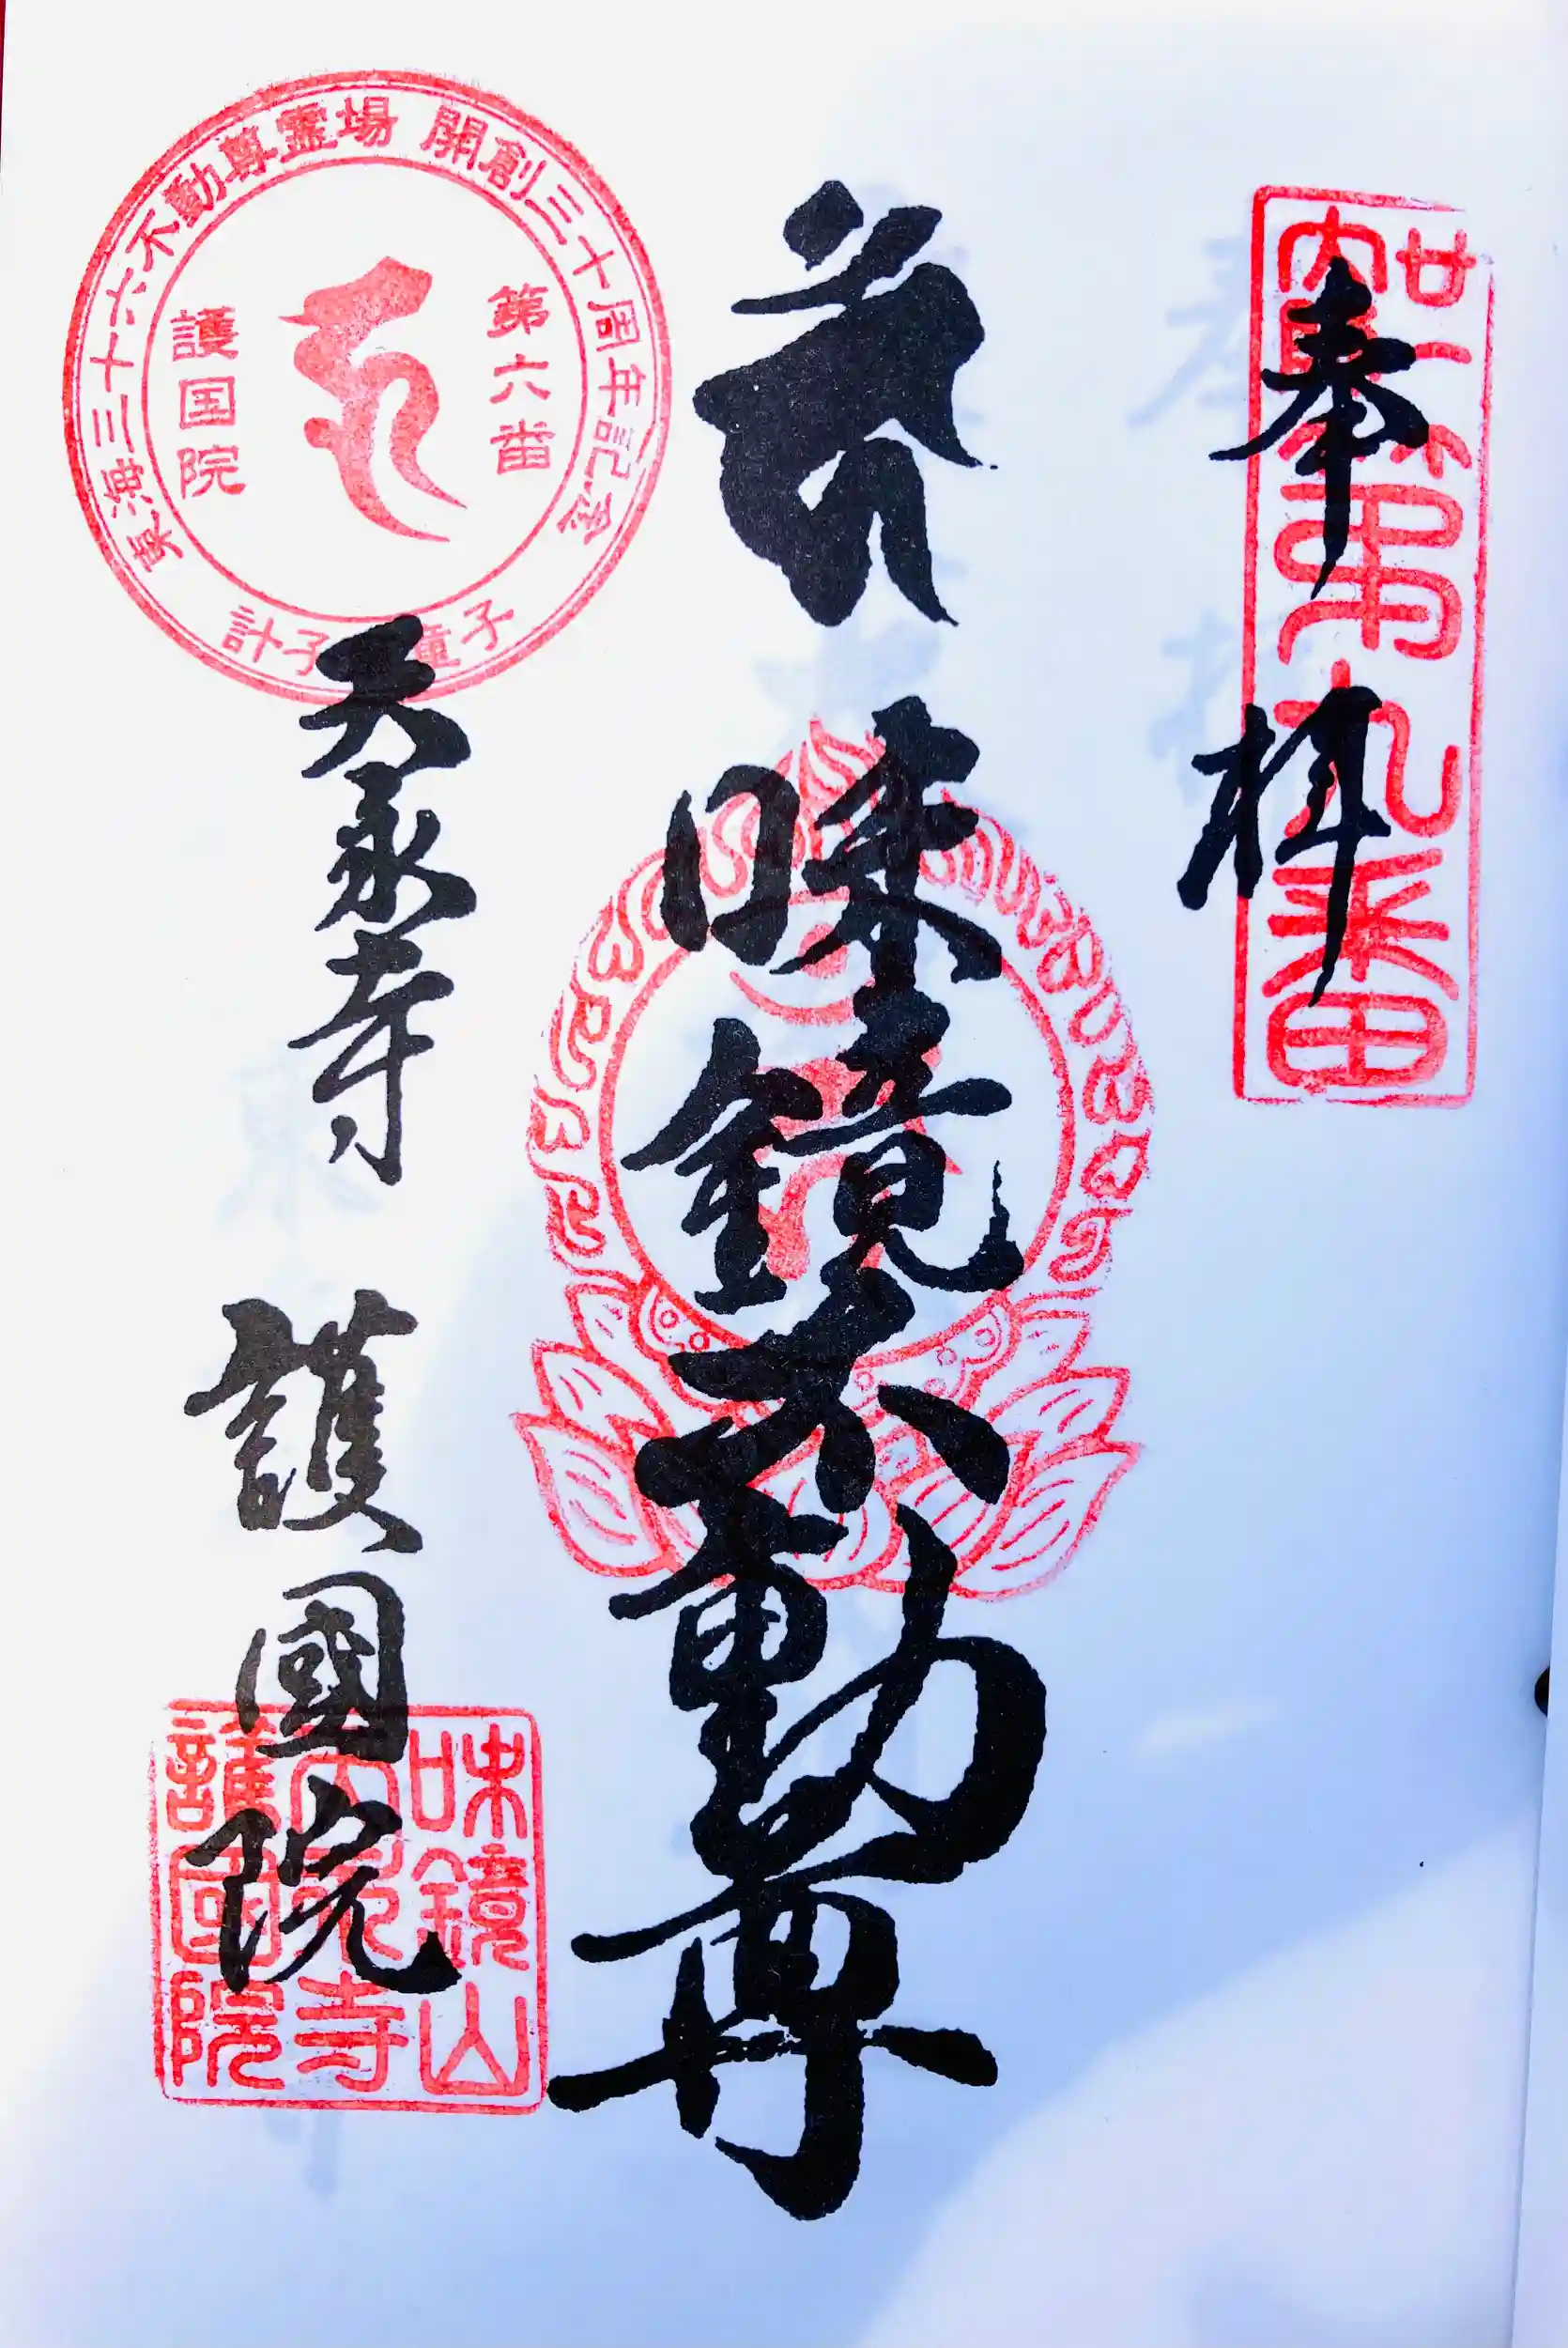 奉拝
第九番
味鏡不動尊
天永寺 護國院
東海三十六不動尊霊場 開創三十周年記念
第六番
護国院
計子 童子
味鏡山
天永寺
護國院